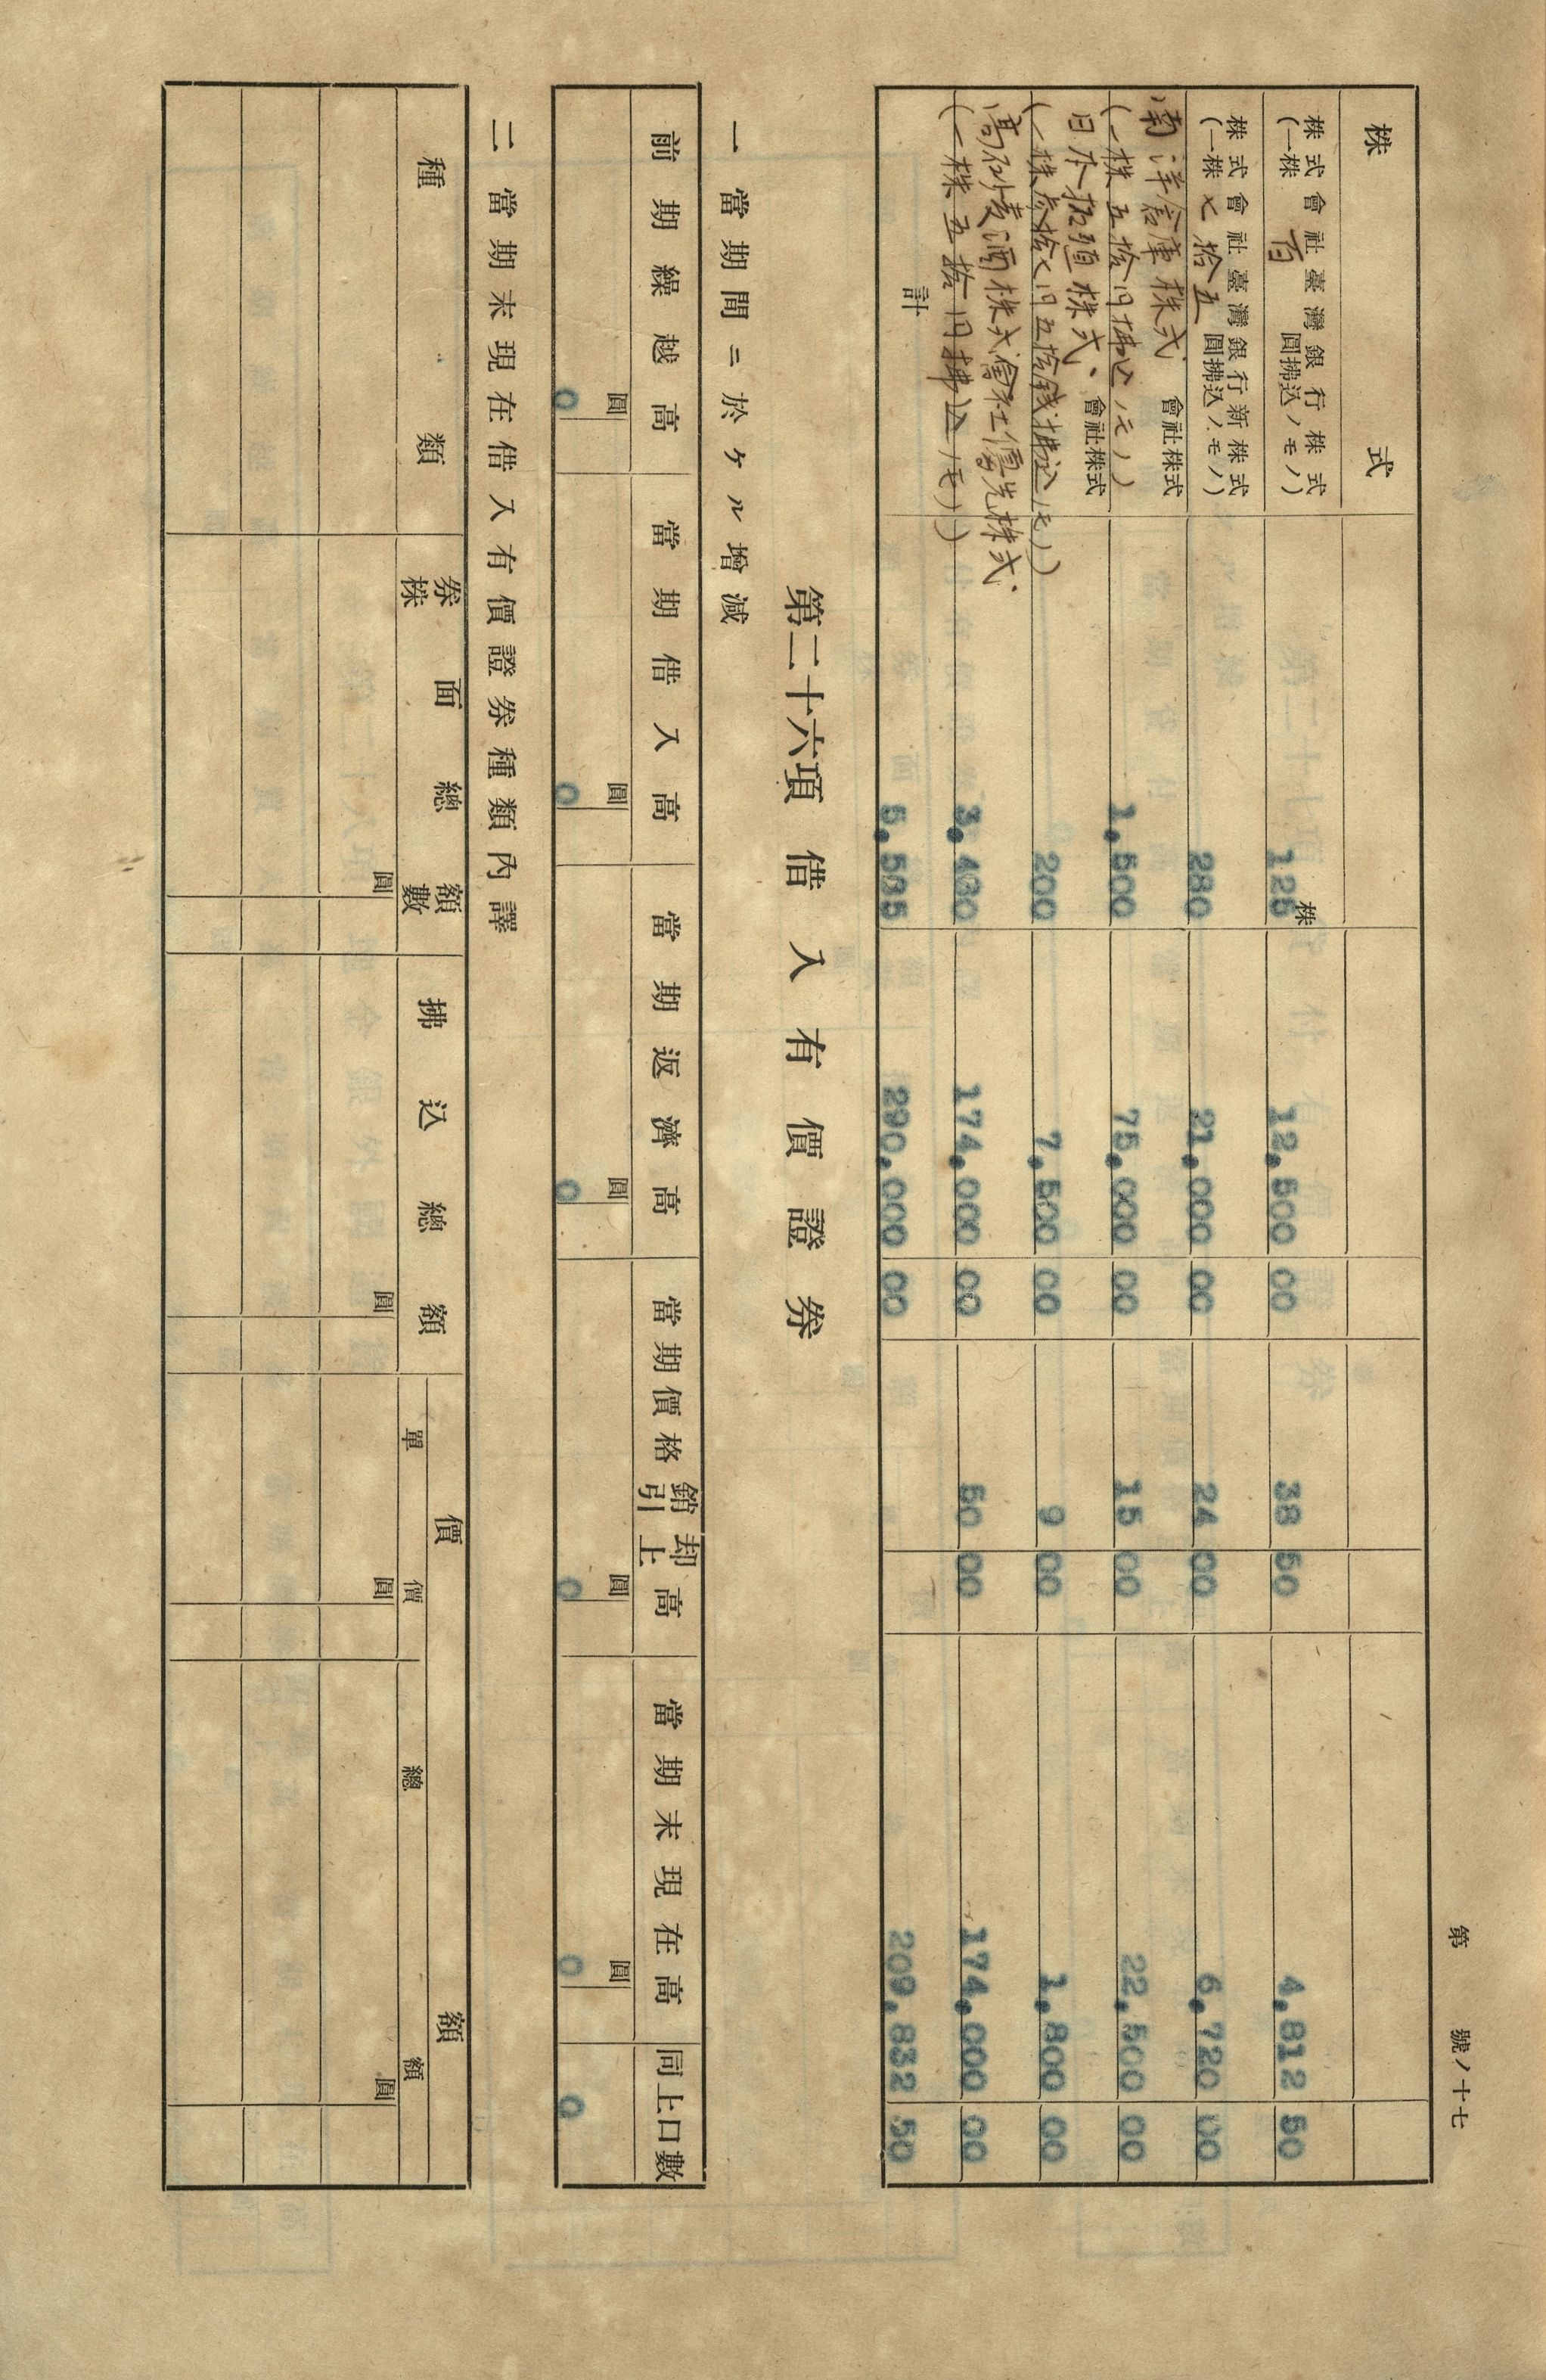 第 號ノ十七
株 式
株式會社臺灣銀行株式 125株 12,500 00 38 50 4,812 50
(一株百圓拂込ノモノ)
株式會社臺灣銀行新株式 280 21,000 00 24 00 6,720 00
(一株七拾五圓拂込ノモノ)
南洋倉庫株式會社株式 1,500 75,000 00 15 00 22,500 00
(一株五拾円拂込ノモノ)
日本拓殖株式會社株式 200 7,500 00 9 00 1,800 00
(一株參拾七円五拾錢拂込ノモノ)
高砂麦酒株式會社優先株式 3,480 174,000 00 50 00 174,000 00
(一株五拾円拂込ノモノ)
計 5,585 290,000 00 209,832 50
第二十六項 借入有價證券
一 當期間ニ於ケル增減
前期繰越高 當期借入高 當期返濟高 當期價格銷却引上高 當期末現在高 同上口數
圓 圓 圓 圓 圓
0 0 0 0 0 0
二 當期末現在借入有價證券種類內譯
種類 券面總額 株數 拂込總額 價額
單價 總額
圓 圓 圓 圓